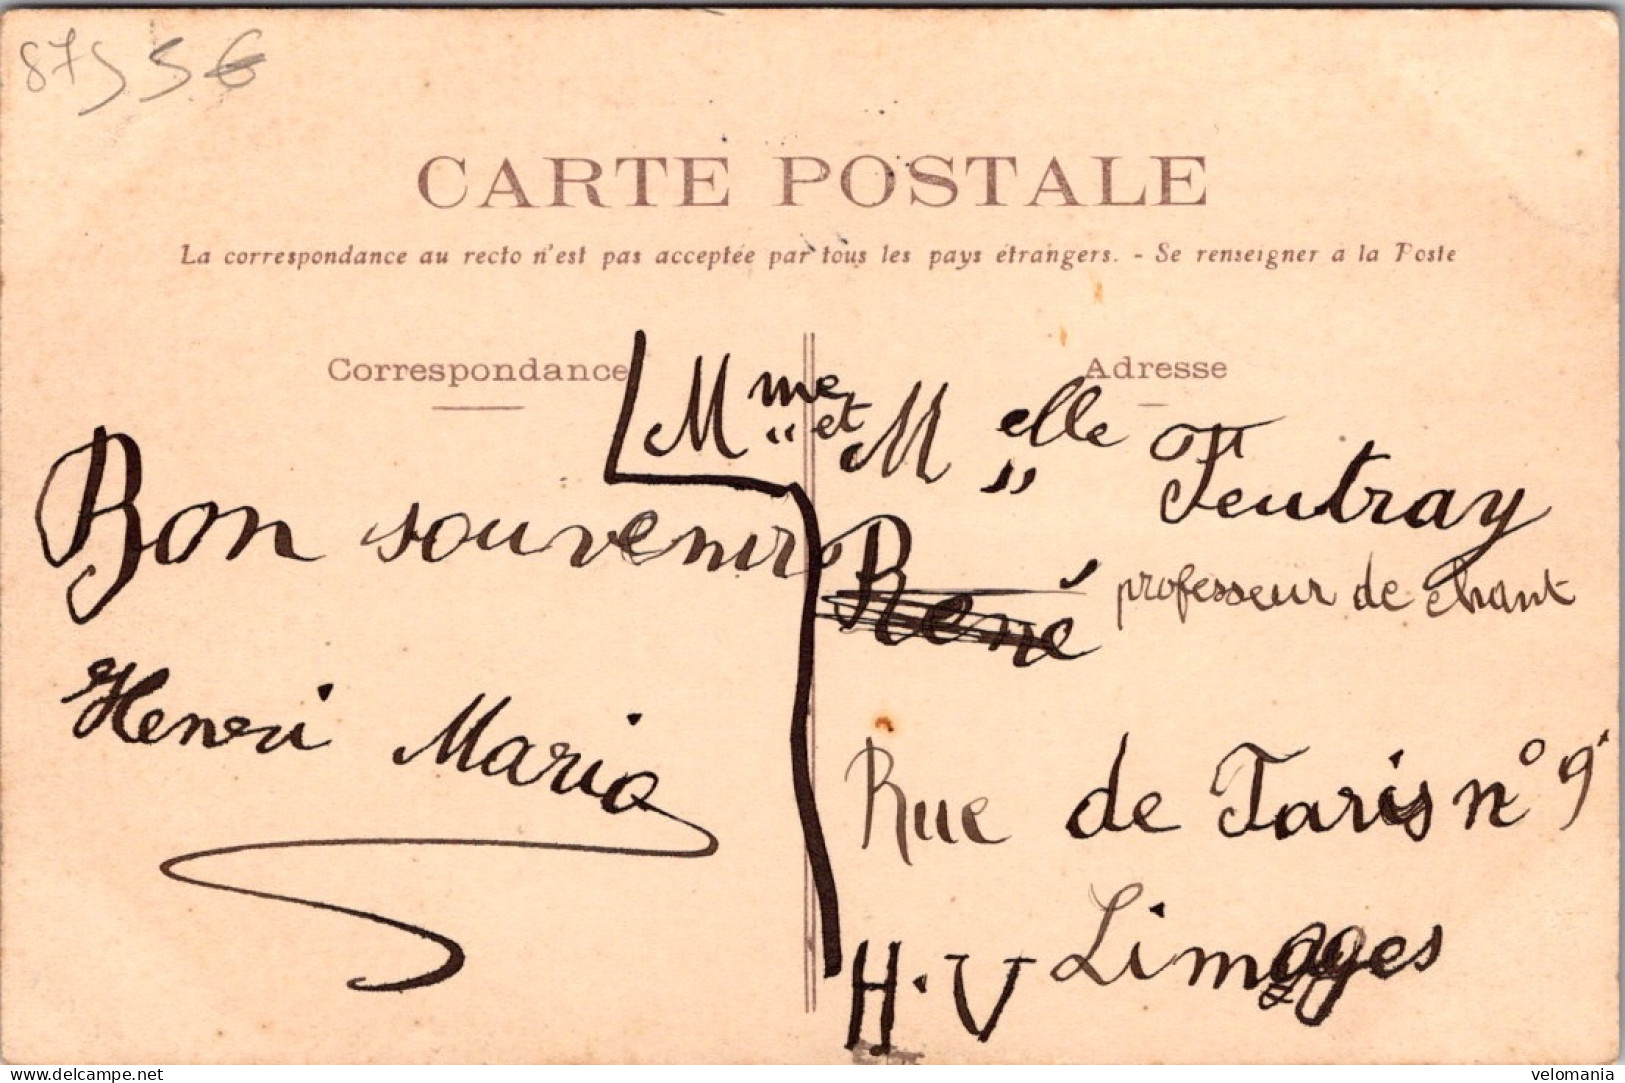 87 5 5€
CARTE POSTALE
La correspondance au recto n'est pas acceptée par tous les pays étrangers. - Se renseigner a la Poste
Correspondance
Adresse
Bon souvenir
Henri Mario
Mme et Melle Feutray
René professeur de chant
Rue de Paris n° 9
Limoges
H.V
delcampe.net
velomania